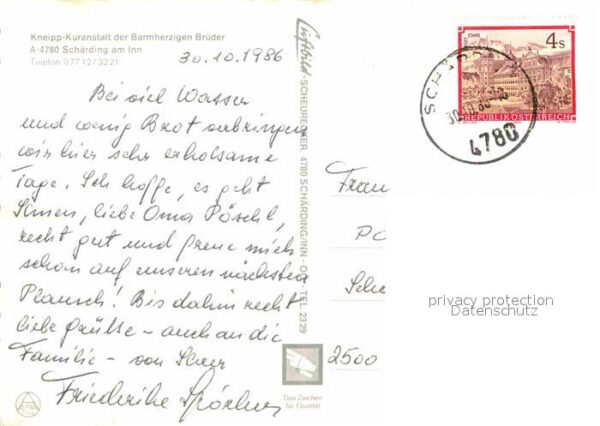 Kneipp-Kuranstalt der Barmherzigen Brüder
A-4780 Schärding am Inn
Telefon 0 77 12 / 32 21
30.10.1986
Bei viel Wasser
und wenig Brot verbringen
wir hier sehr erholsame
Tage. Ich hoffe, es geht
Ihnen, liebe Oma Pöschl,
recht gut und freue mich
schon auf unseren nächsten
Plausch! Bis dahin recht
liebe Grüße – auch an die
Familie – von Ihrer
Friederike
Luftbild-SCHEURECKER, 4780 SCHÄRDING/INN - OÖ - TEL. 23 29
Das Zeichen
für Qualität
STAMS
4 S
REPUBLIK ÖSTERREICH
4780
Frau
2500
privacy protection
Datenschutz